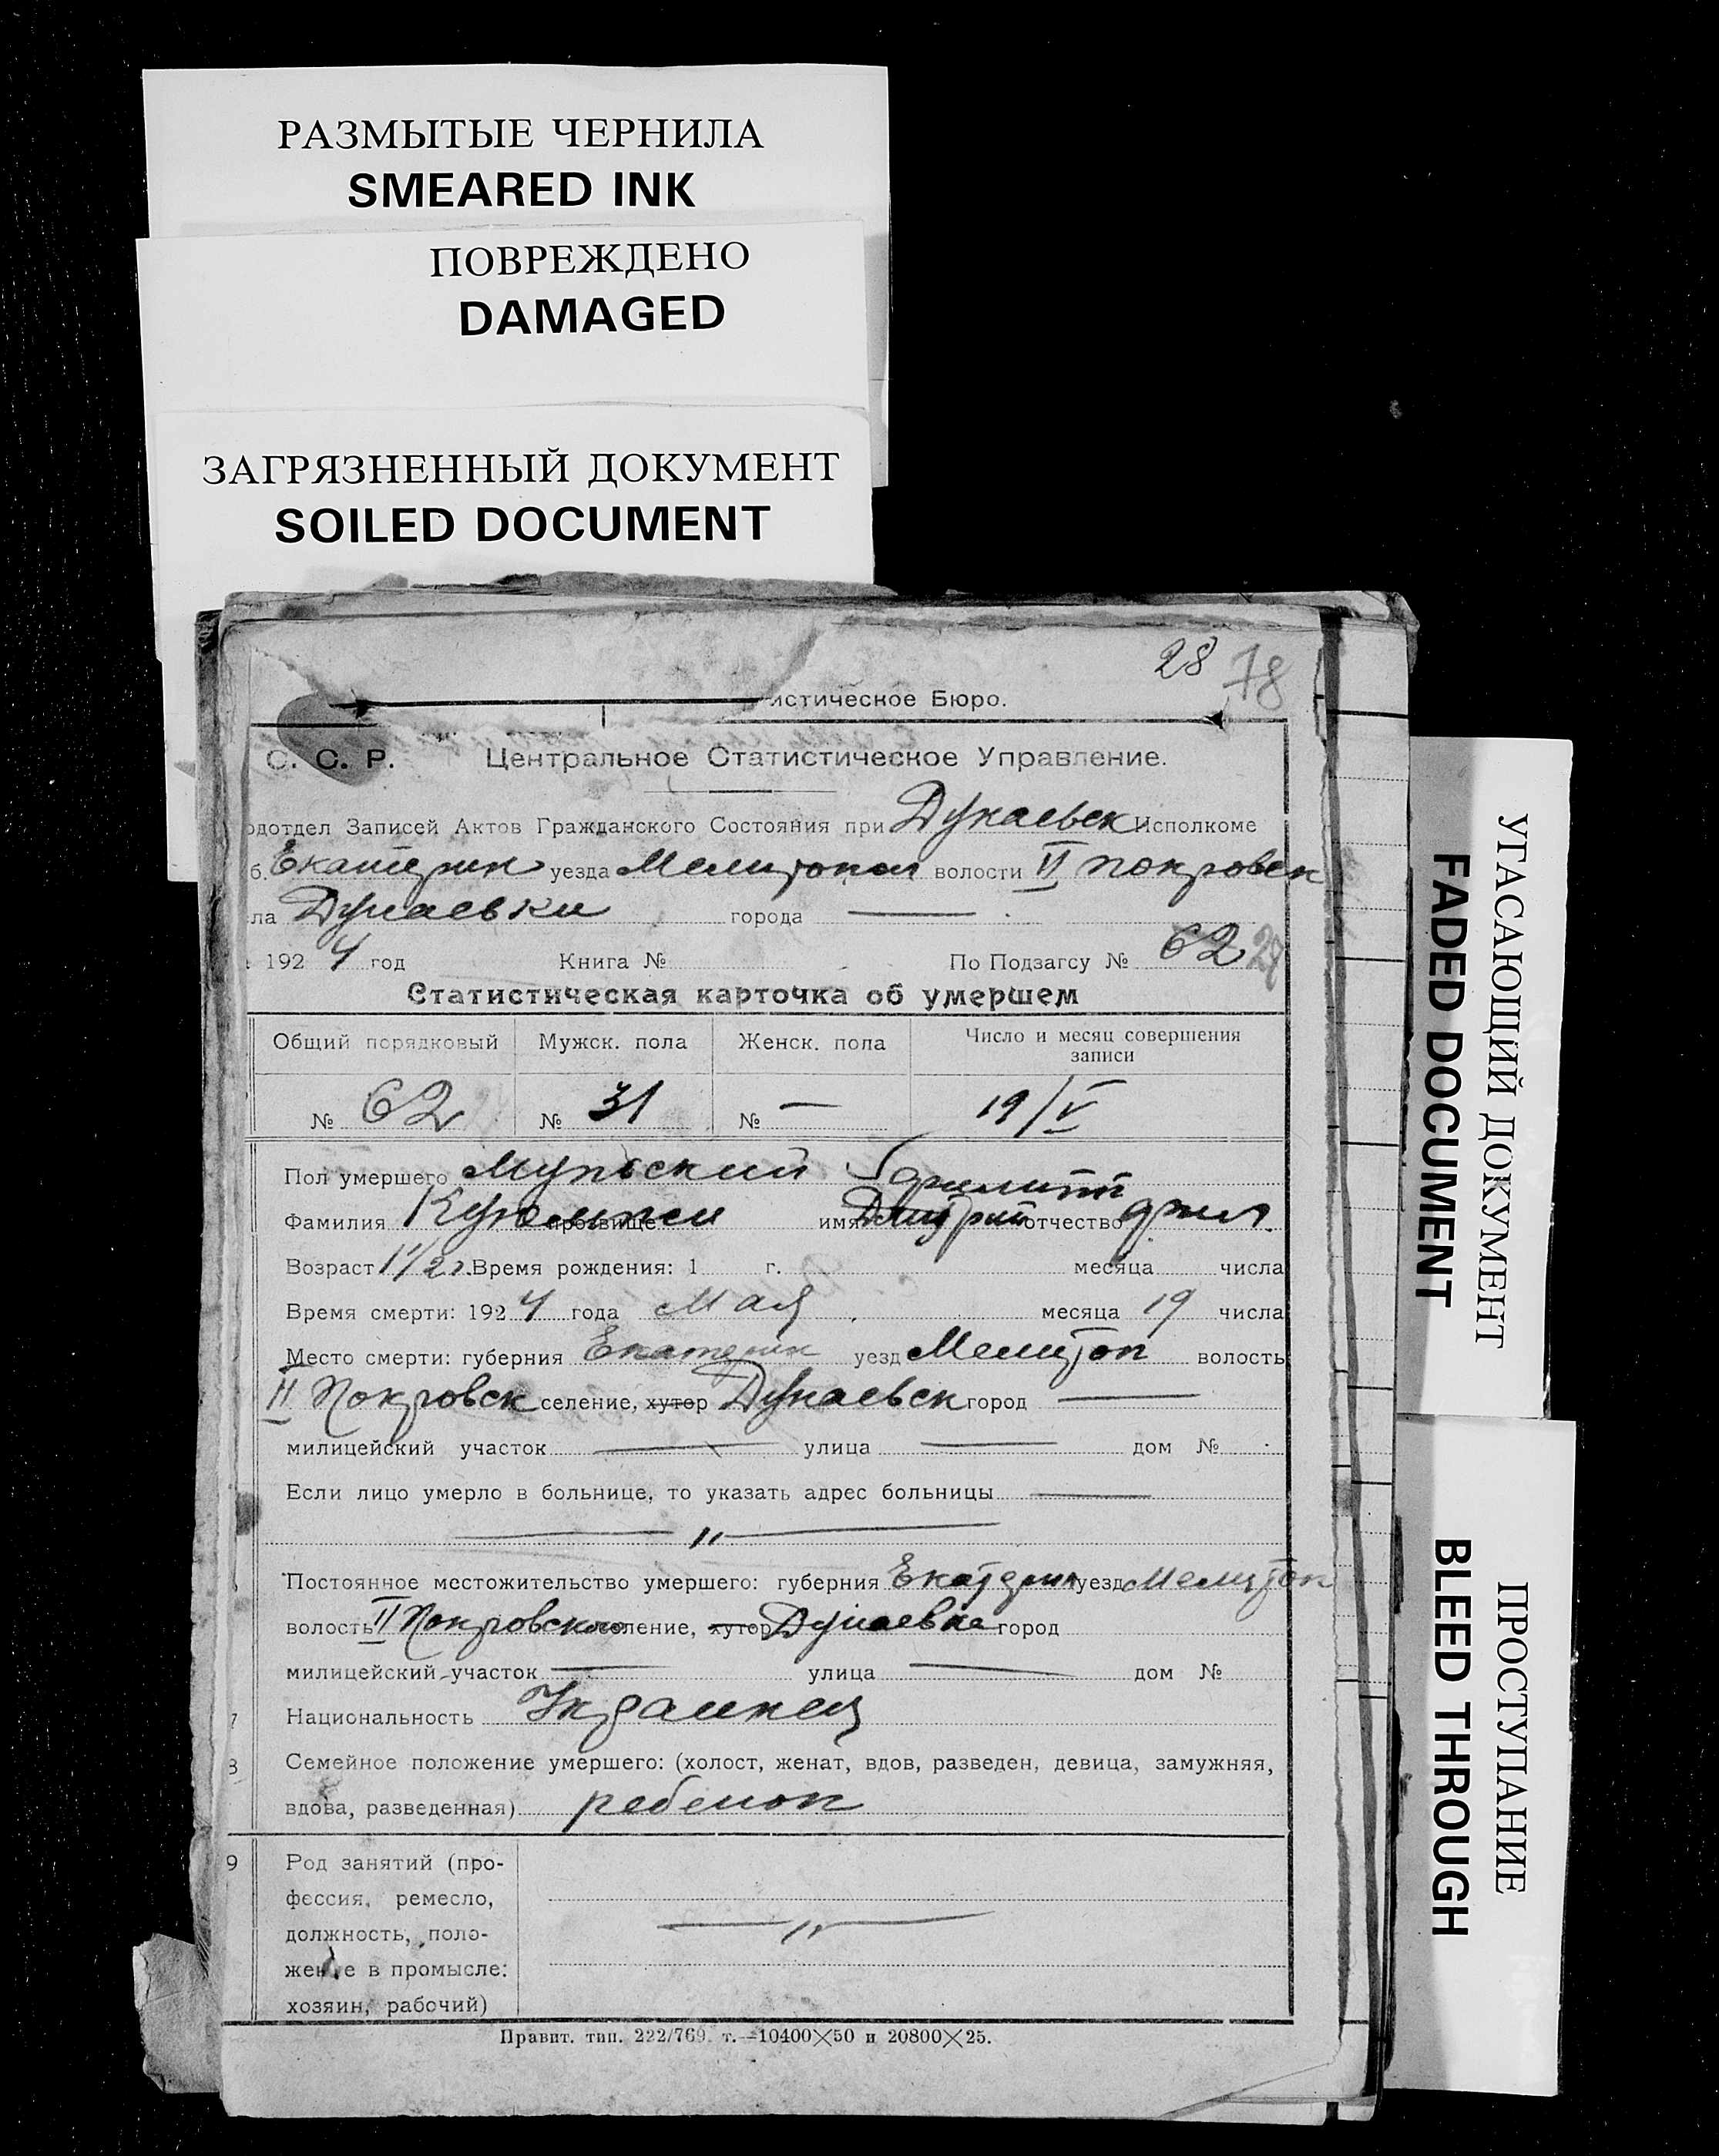 РАЗМЫТЫЕ ЧЕРНИЛА
SMEARED INK
ПОВРЕЖДЕНО
DAMAGED
ЗАГРЯЗНЕННЫЙ ДОКУМЕНТ
SOILED DOCUMENT
28 78
истическое Бюро.
С. С. Р. Центральное Статистическое Управление.
одотдел Записей Актов Гражданского Состояния при Дунаевск Исполкоме
б. Екатерин уезда Мелитопол волости II Покровск
ла Дунаевки города —
192 4 год Книга № По Подзагсу № 62
Статистическая карточка об умершем
Общий порядковый Мужск. пола Женск. пола Число и месяц совершения записи
№ 62 № 31 № — 19/V
Пол умершего Мужской
Фамилия прозвище имя Дмитрий отчество
Возраст 1 1/2 г. Время рождения: 1 г. месяца числа
Время смерти: 192 4 года Мая месяца 19 числа
Место смерти: губерния Екатерин уезд Мелитоп волость
II Покровск селение, хутор Дунаевск город —
милицейский участок — улица — дом №
Если лицо умерло в больнице, то указать адрес больницы —
— " —
Постоянное местожительство умершего: губерния Екатерин уезд Мелитоп
волость II Покровск селение, хутор Дунаевке город
милицейский участок — улица — дом №
7 Национальность Украинец
8 Семейное положение умершего: (холост, женат, вдов, разведен, девица, замужняя,
вдова, разведенная) ребенок
9 Род занятий (про-
фессия, ремесло,
должность, поло-
жение в промысле:
хозяин, рабочий)
— " —
Правит. тип. 222/769. т.—10400×50 и 20800×25.
УГАСАЮЩИЙ ДОКУМЕНТ
FADED DOCUMENT
ПРОСТУПАНИЕ
BLEED THROUGH